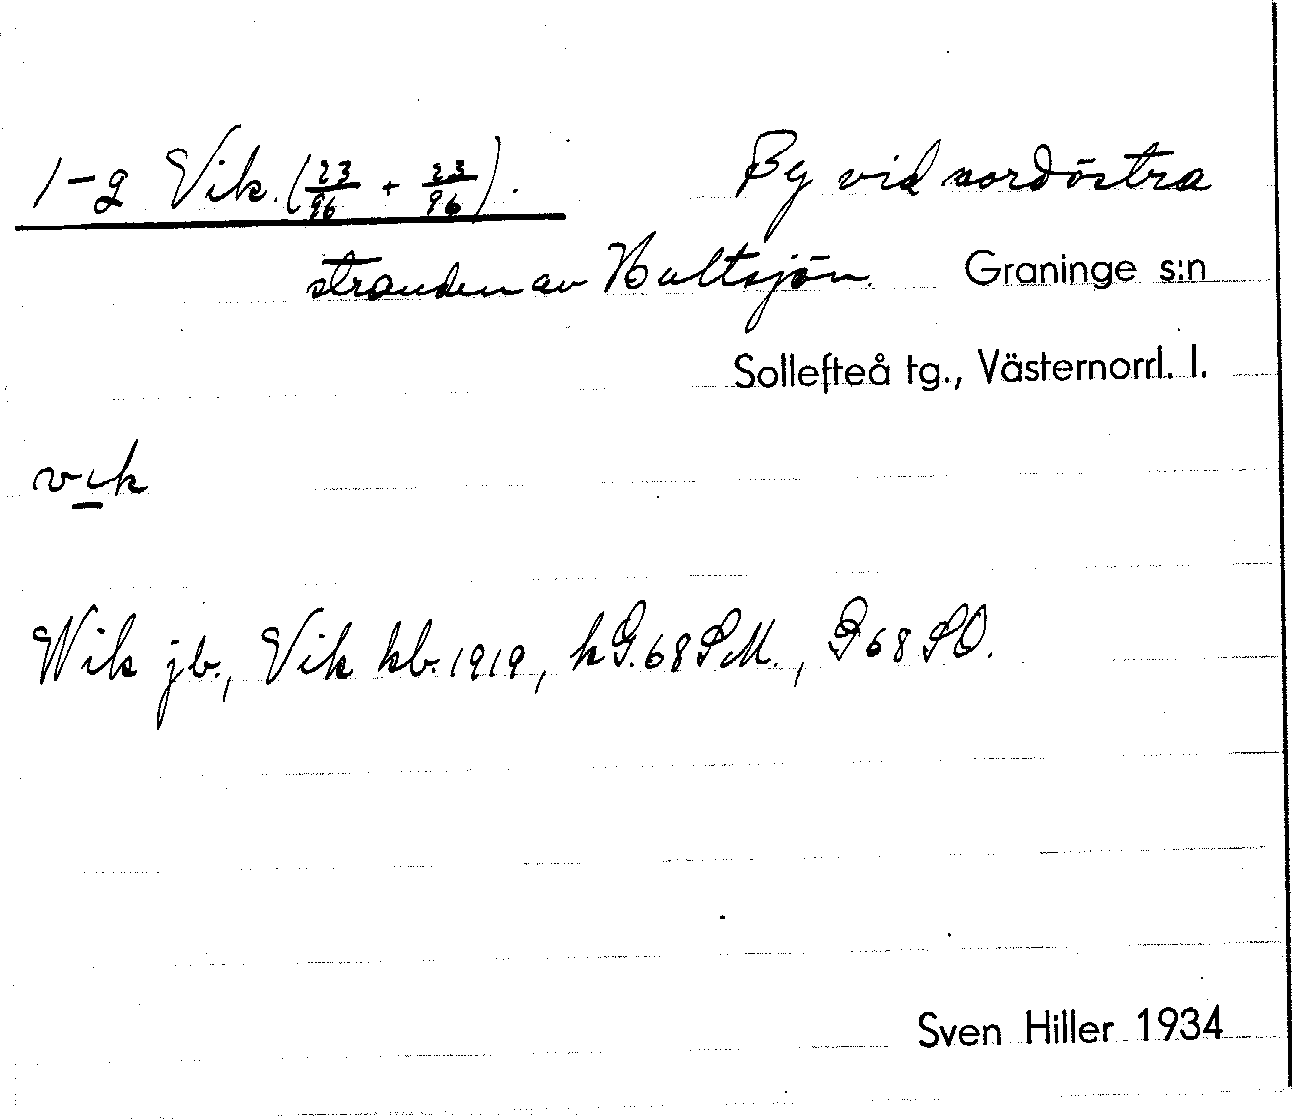 1-2 Vik. (23/96 + 23/96). By vid nordöstra
stranden av Holtsjön. Graninge s:n
Sollefteå tg., Västernorrl. l.
vik
Wik jb., Vik kb. 1919, kG. 68 SM., G 68 SO.
Sven Hiller 1934